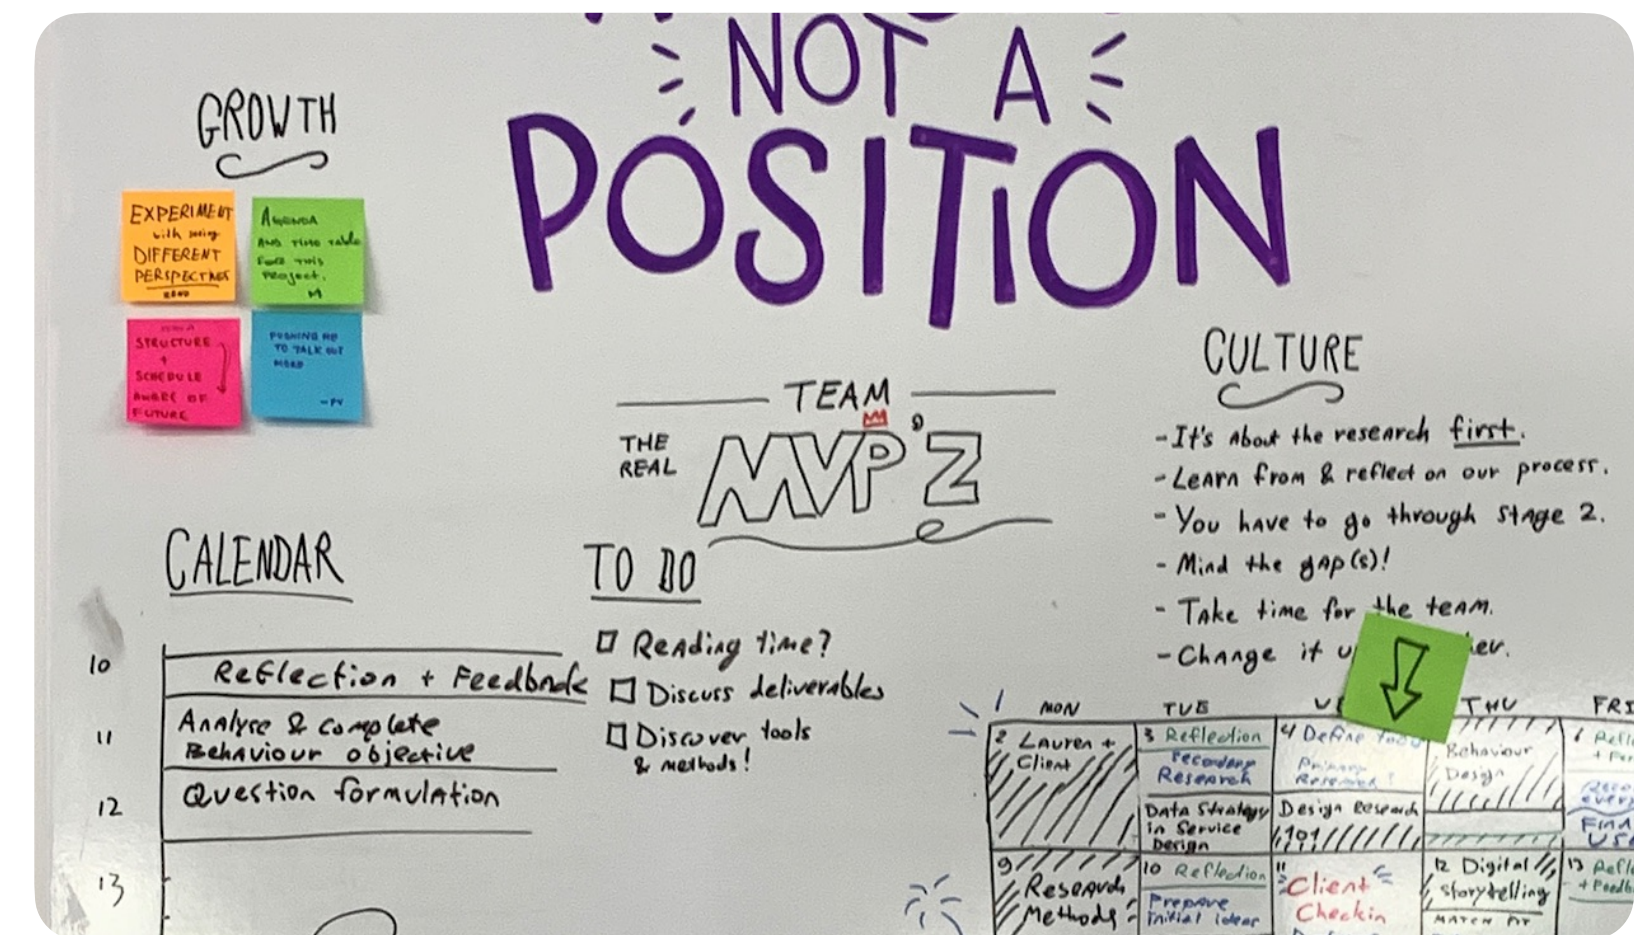 NOT A
POSITION
GROWTH
EXPERIMENT
with seeing
DIFFERENT
PERSPECTIVES
AGENDA
AND TIME TABLE
FOR THIS
PROJECT.
M
STRUCTURE
+
SCHEDULE
AWARE OF
FUTURE
PUSHING ME
TO TALK OUT
MORE
-PV
TEAM
THE
REAL
MVP'Z
CULTURE
- It's about the research first.
- Learn from & reflect on our process.
- You have to go through stage 2.
- Mind the gap(s)!
- Take time for the team.
- Change it
CALENDAR
10
Reflection + Feedback
11
Analyse & complete
Behaviour objective
12
Question formulation
13
TO DO
Reading time?
Discuss deliverables
Discover tools
& methods!
MON
TUE
THU
FRI
2 Lauren +
Client
3 Reflection
Secondary
Research
Data Strategy
in Service
Design
4 Define
Primary
Research?
Design Research
101
Behaviour
Design
6
9
Research
Methods
10 Reflection
Prepare
initial ideas
11
Client
Checkin
12 Digital
Storytelling
13